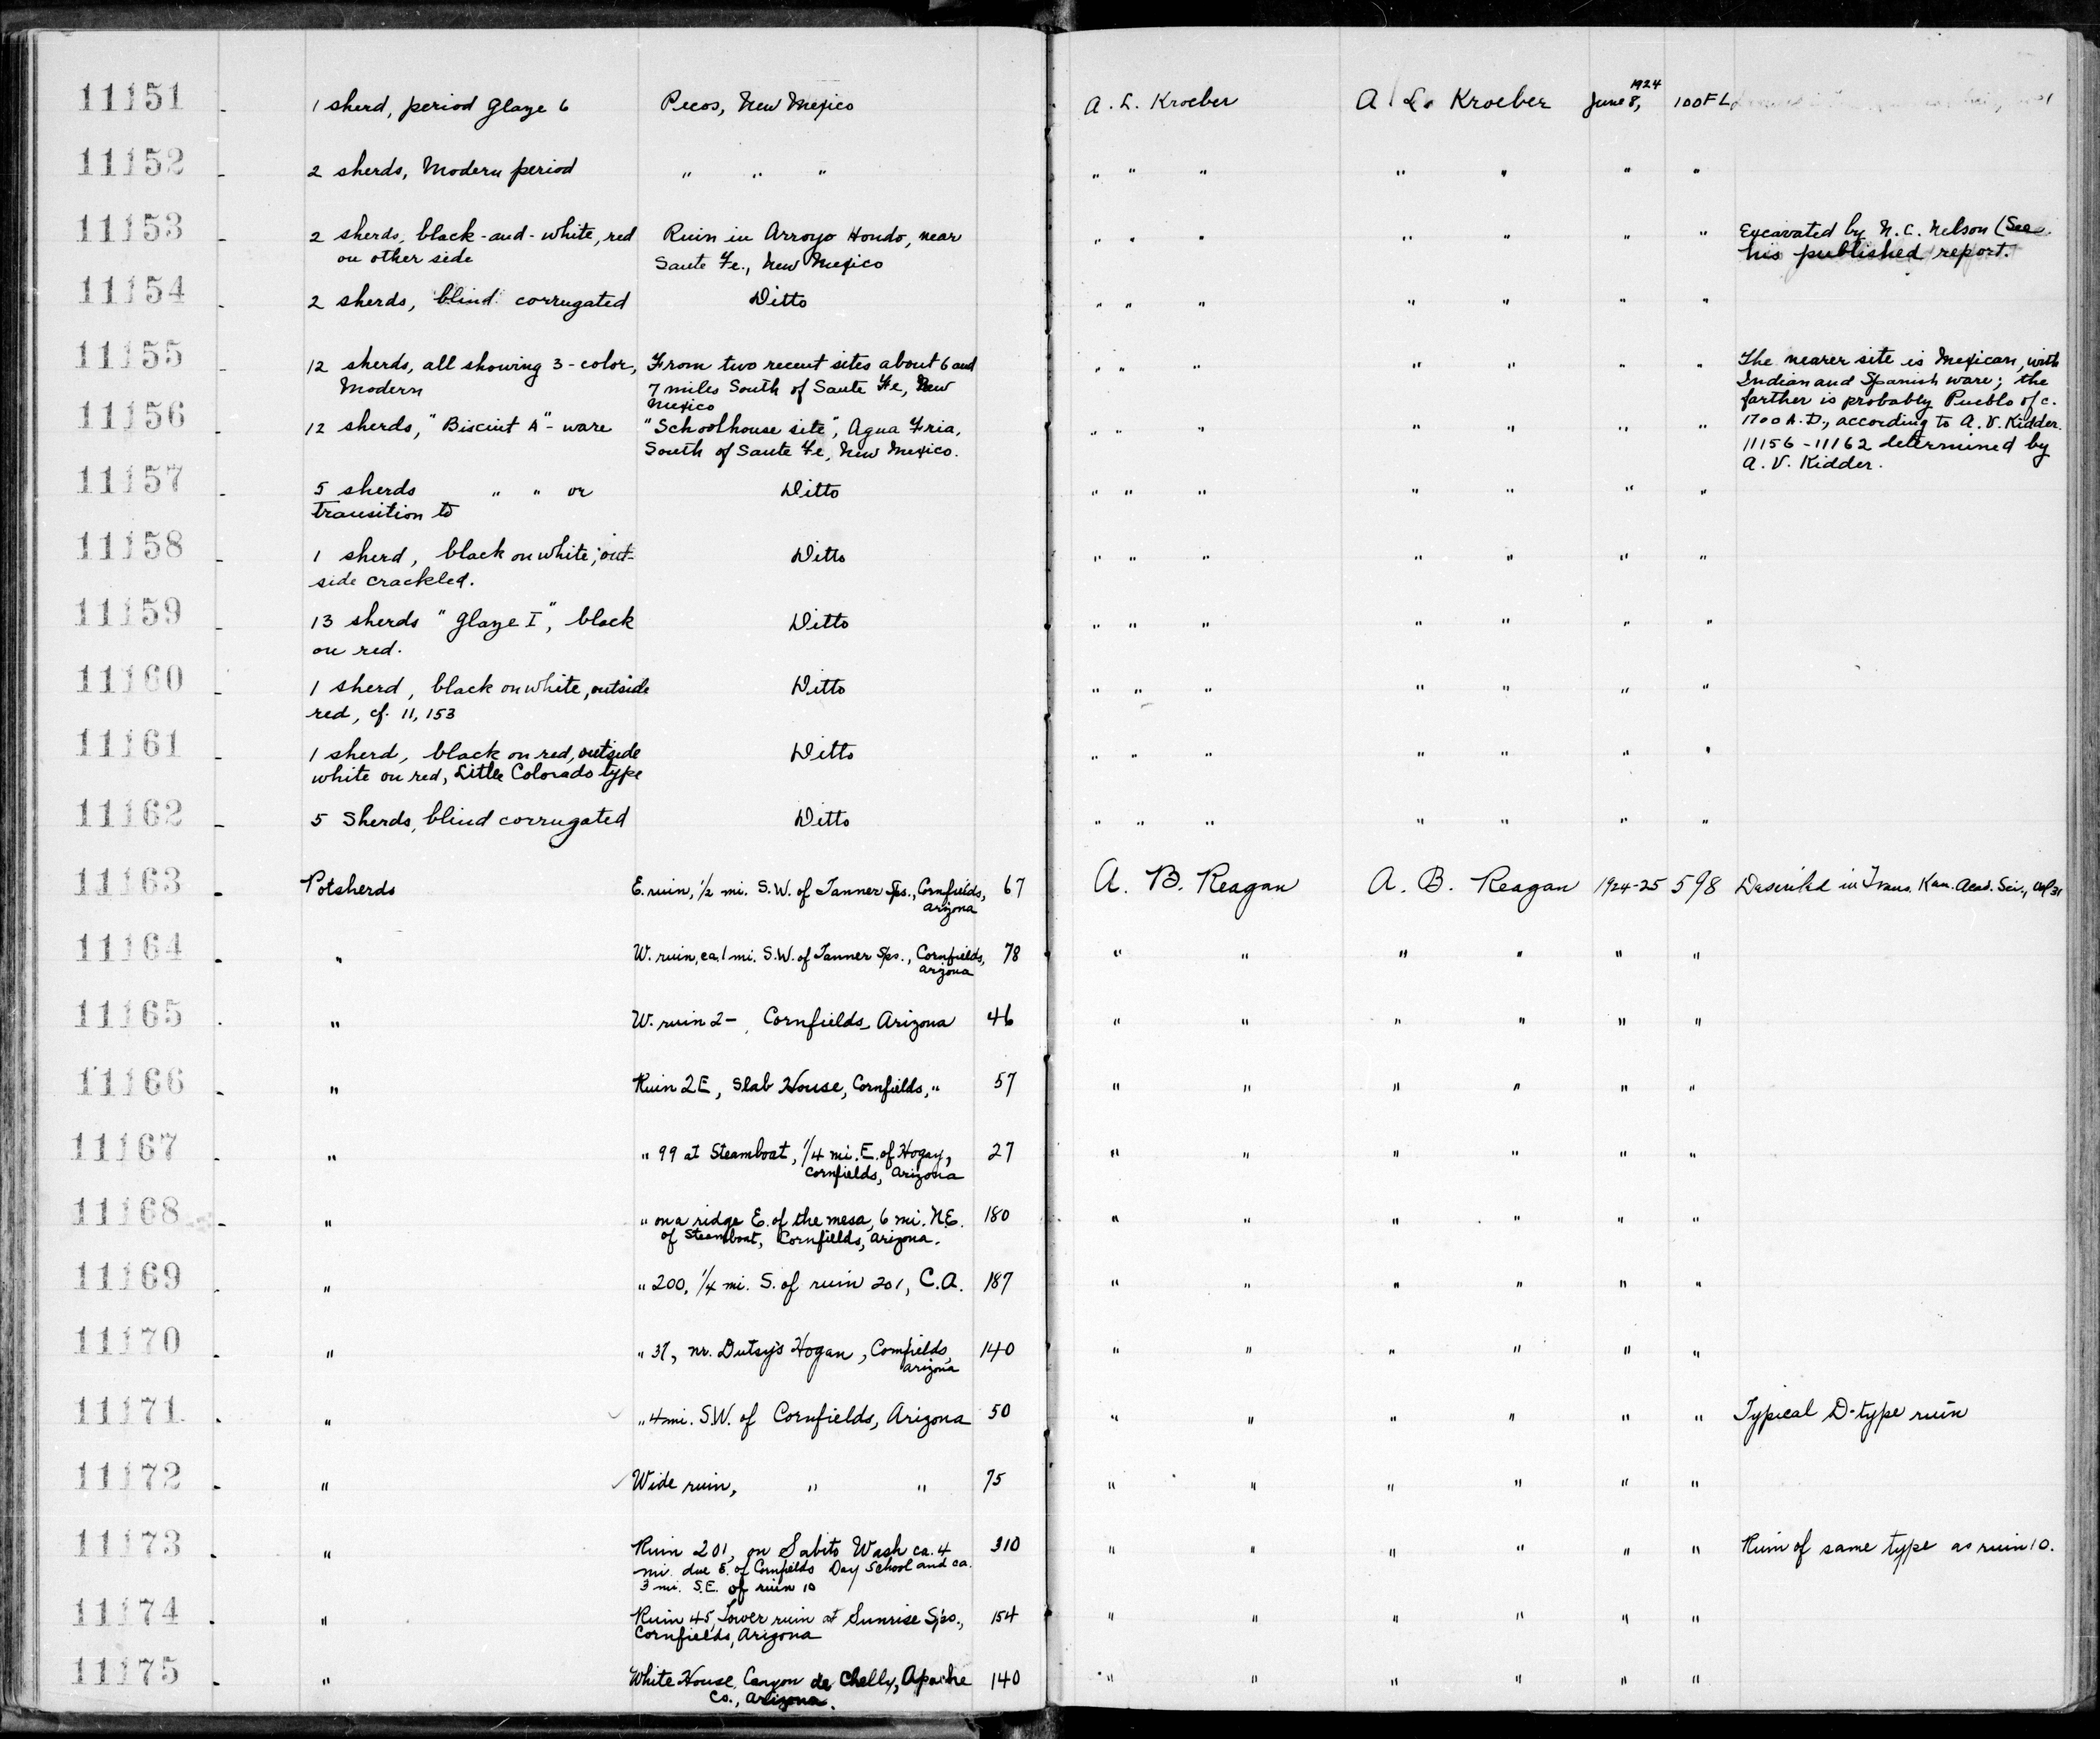 11151 - 1 sherd, period glaze 6 Pecos, New Mexico A. L. Kroeber A. L. Kroeber June 8, 1924 100FL
11152 - 2 sherds, Modern period " " " " " " " " " "
11153 - 2 sherds, black-and-white, red Ruin in Arroyo Hondo, near " " " " " " " Excavated by N.C. Nelson (See
on other side Sante Fe., New Mexico his published report.
11154 - 2 sherds, blind corrugated Ditto " " " " " " "
11155 - 12 sherds, all showing 3-color, From two recent sites about 6 and " " " " " " " The nearer site is Mexican, with
Modern 7 miles South of Sante Fe, New Indian and Spanish ware; the
Mexico farther is probably Pueblo of c.
11156 - 12 sherds, "Biscuit A"-ware "Schoolhouse site", Agua Fria, " " " " " " " 1700 A.D., according to A.V. Kidder.
South of Sante Fe, New Mexico. 11156-11162 determined by
A. V. Kidder.
11157 - 5 sherds " " or Ditto " " " " " " "
transition to
11158 - 1 sherd, black on white; out- Ditto " " " " " " "
side crackled.
11159 - 13 sherds "Glaze I", black Ditto " " " " " " "
on red.
11160 - 1 sherd, black on white, outside Ditto " " " " " " "
red, cf. 11,153
11161 - 1 sherd, black on red, outside Ditto " " " " " " "
white on red, Little Colorado type
11162 - 5 Sherds, blind corrugated Ditto " " " " " " "
11163 - Potsherds E. ruin, 1/2 mi. S.W. of Tanner Sps., Cornfields, 67 A. B. Reagan A. B. Reagan 1924-25 598 Described in Trans. Kan. Acad. Sci., Vol 31
Arizona
11164 - " W. ruin, ca. 1 mi. S.W. of Tanner Sps., Cornfields, 78 " " " " " "
Arizona
11165 - " W. ruin 2-, Cornfields, Arizona 46 " " " " " "
11166 - " Ruin 2E, Slab House, Cornfields, " 57 " " " " " "
11167 - " " 99 at Steamboat, 1/4 mi. E. of Hogan, 27 " " " " " "
Cornfields, Arizona
11168 - " " on a ridge E. of the mesa, 6 mi. N.E. 180 " " " " " "
of Steamboat, Cornfields, Arizona.
11169 - " " 200, 1/4 mi. S. of ruin 201, C.A. 187 " " " " " "
11170 - " " 37, nr. Hogan, Cornfields, 140 " " " " " "
Arizona
11171 - " " 4 mi. S.W. of Cornfields, Arizona 50 " " " " " " Typical D-type ruin
11172 - " ✓ Wide ruin, " " 75 " " " " " "
11173 - " Ruin 201, on Sabito Wash ca. 4 310 " " " " " " Ruin of same type as ruin 10.
mi. due E. of Cornfields Day School and ca.
3 mi. S.E. of ruin 10
11174 - " Ruin 45, Lower ruin at Sunrise Sps., 154 " " " " " "
Cornfields, Arizona
11175 - " White House, Canyon de Chelly, Apache 140 " " " " " "
Co., Arizona.